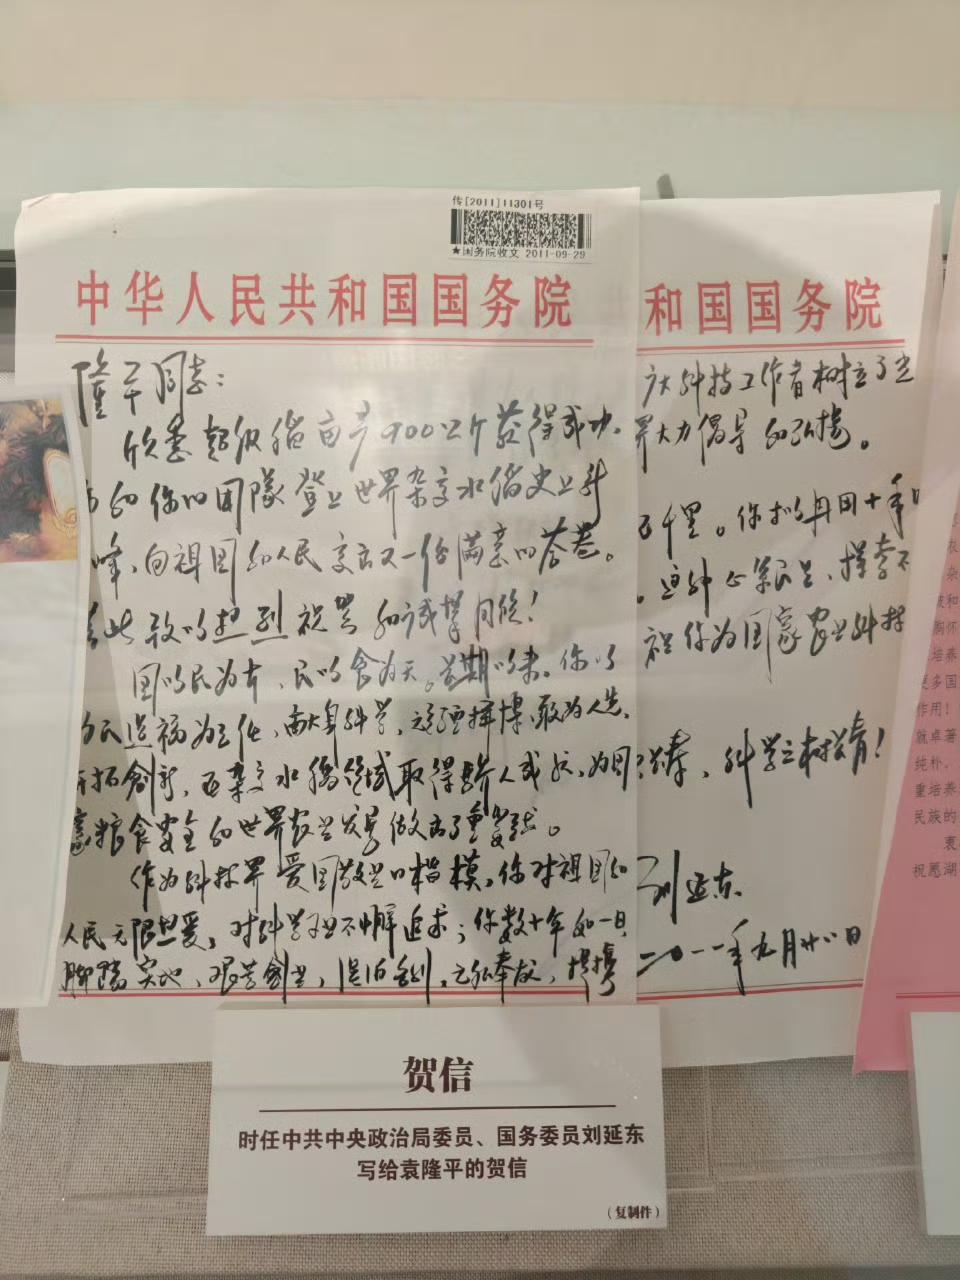 传[2011]11301号
★国务院收文 2011-09-29
中华人民共和国国务院
隆平同志：
欣悉超级稻亩产900公斤获得成功，
的你的团队登上世界杂交水稻史上新
峰，向祖国和人民交出又一份满意的答卷。
此致以热烈祝贺和诚挚问候！
国以民为本，民以食为天。长期以来，你以
为民造福为己任，献身科学，顽强拼搏，敢为人先，
开拓创新，在杂交水稻领域取得骄人成就，为国
家粮食安全和世界农业发展做出了重要贡献。
作为科技界爱国敬业的楷模，你对祖国和
人民无限热爱，对科学不懈追求；你数十年如一日，
脚踏实地，艰苦创业，淡泊名利，无私奉献，提携
和国国务院
广大科技工作者树立了光
界大力倡导和弘扬。
千里。你
祝你为国家农业科技
科学之树常青！
刘延东
二〇一一年九月廿八日
杂
胸怀
培养
更多国
作用！
就卓著
纯朴、
重培养
民族的
衷
祝愿湖
贺信
时任中共中央政治局委员、国务委员刘延东
写给袁隆平的贺信
（复制件）